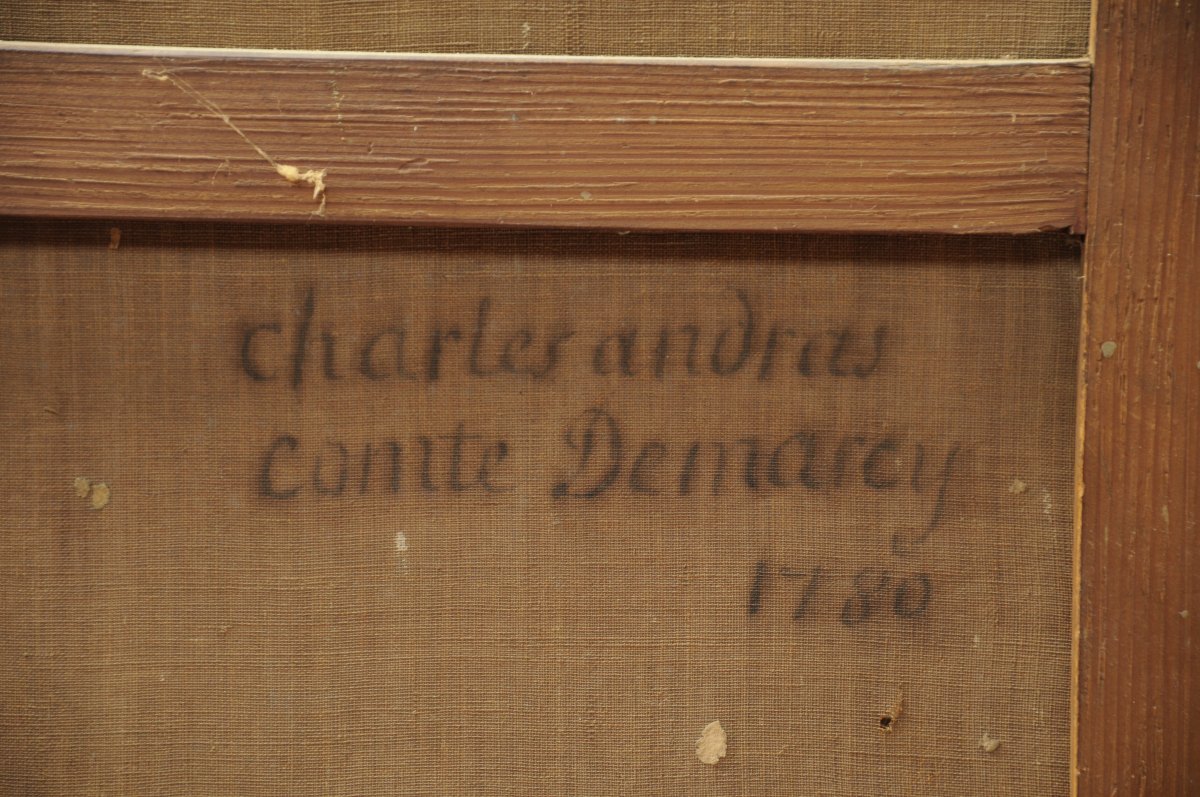 charles andras
comte Demarcy
1780